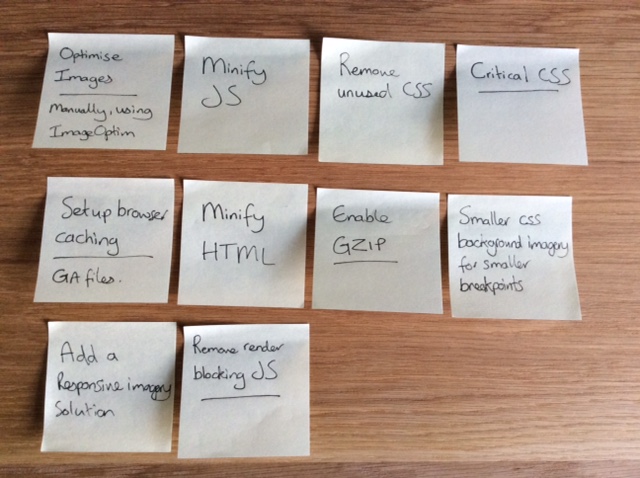 Optimise
Images
Manually, using
ImageOptim
Minify
JS
Remove
unused CSS
Critical CSS
Setup browser
caching
GA files.
Minify
HTML
Enable
GZIP
Smaller css
background imagery
for smaller
breakpoints
Add a
Responsive imagery
Solution
Remove render
blocking JS